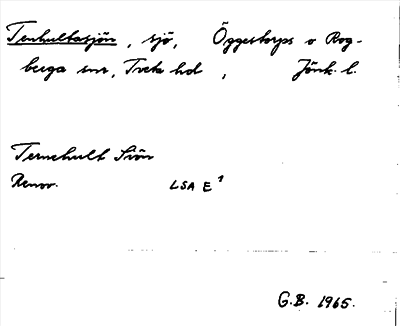 Tenhultasjön, sjö, Öggestorps o Rog-
berga snr, Tveta hd, Jönk. l.
Ternehult Siön
Renov. LSA E¹
G.B. 1965.